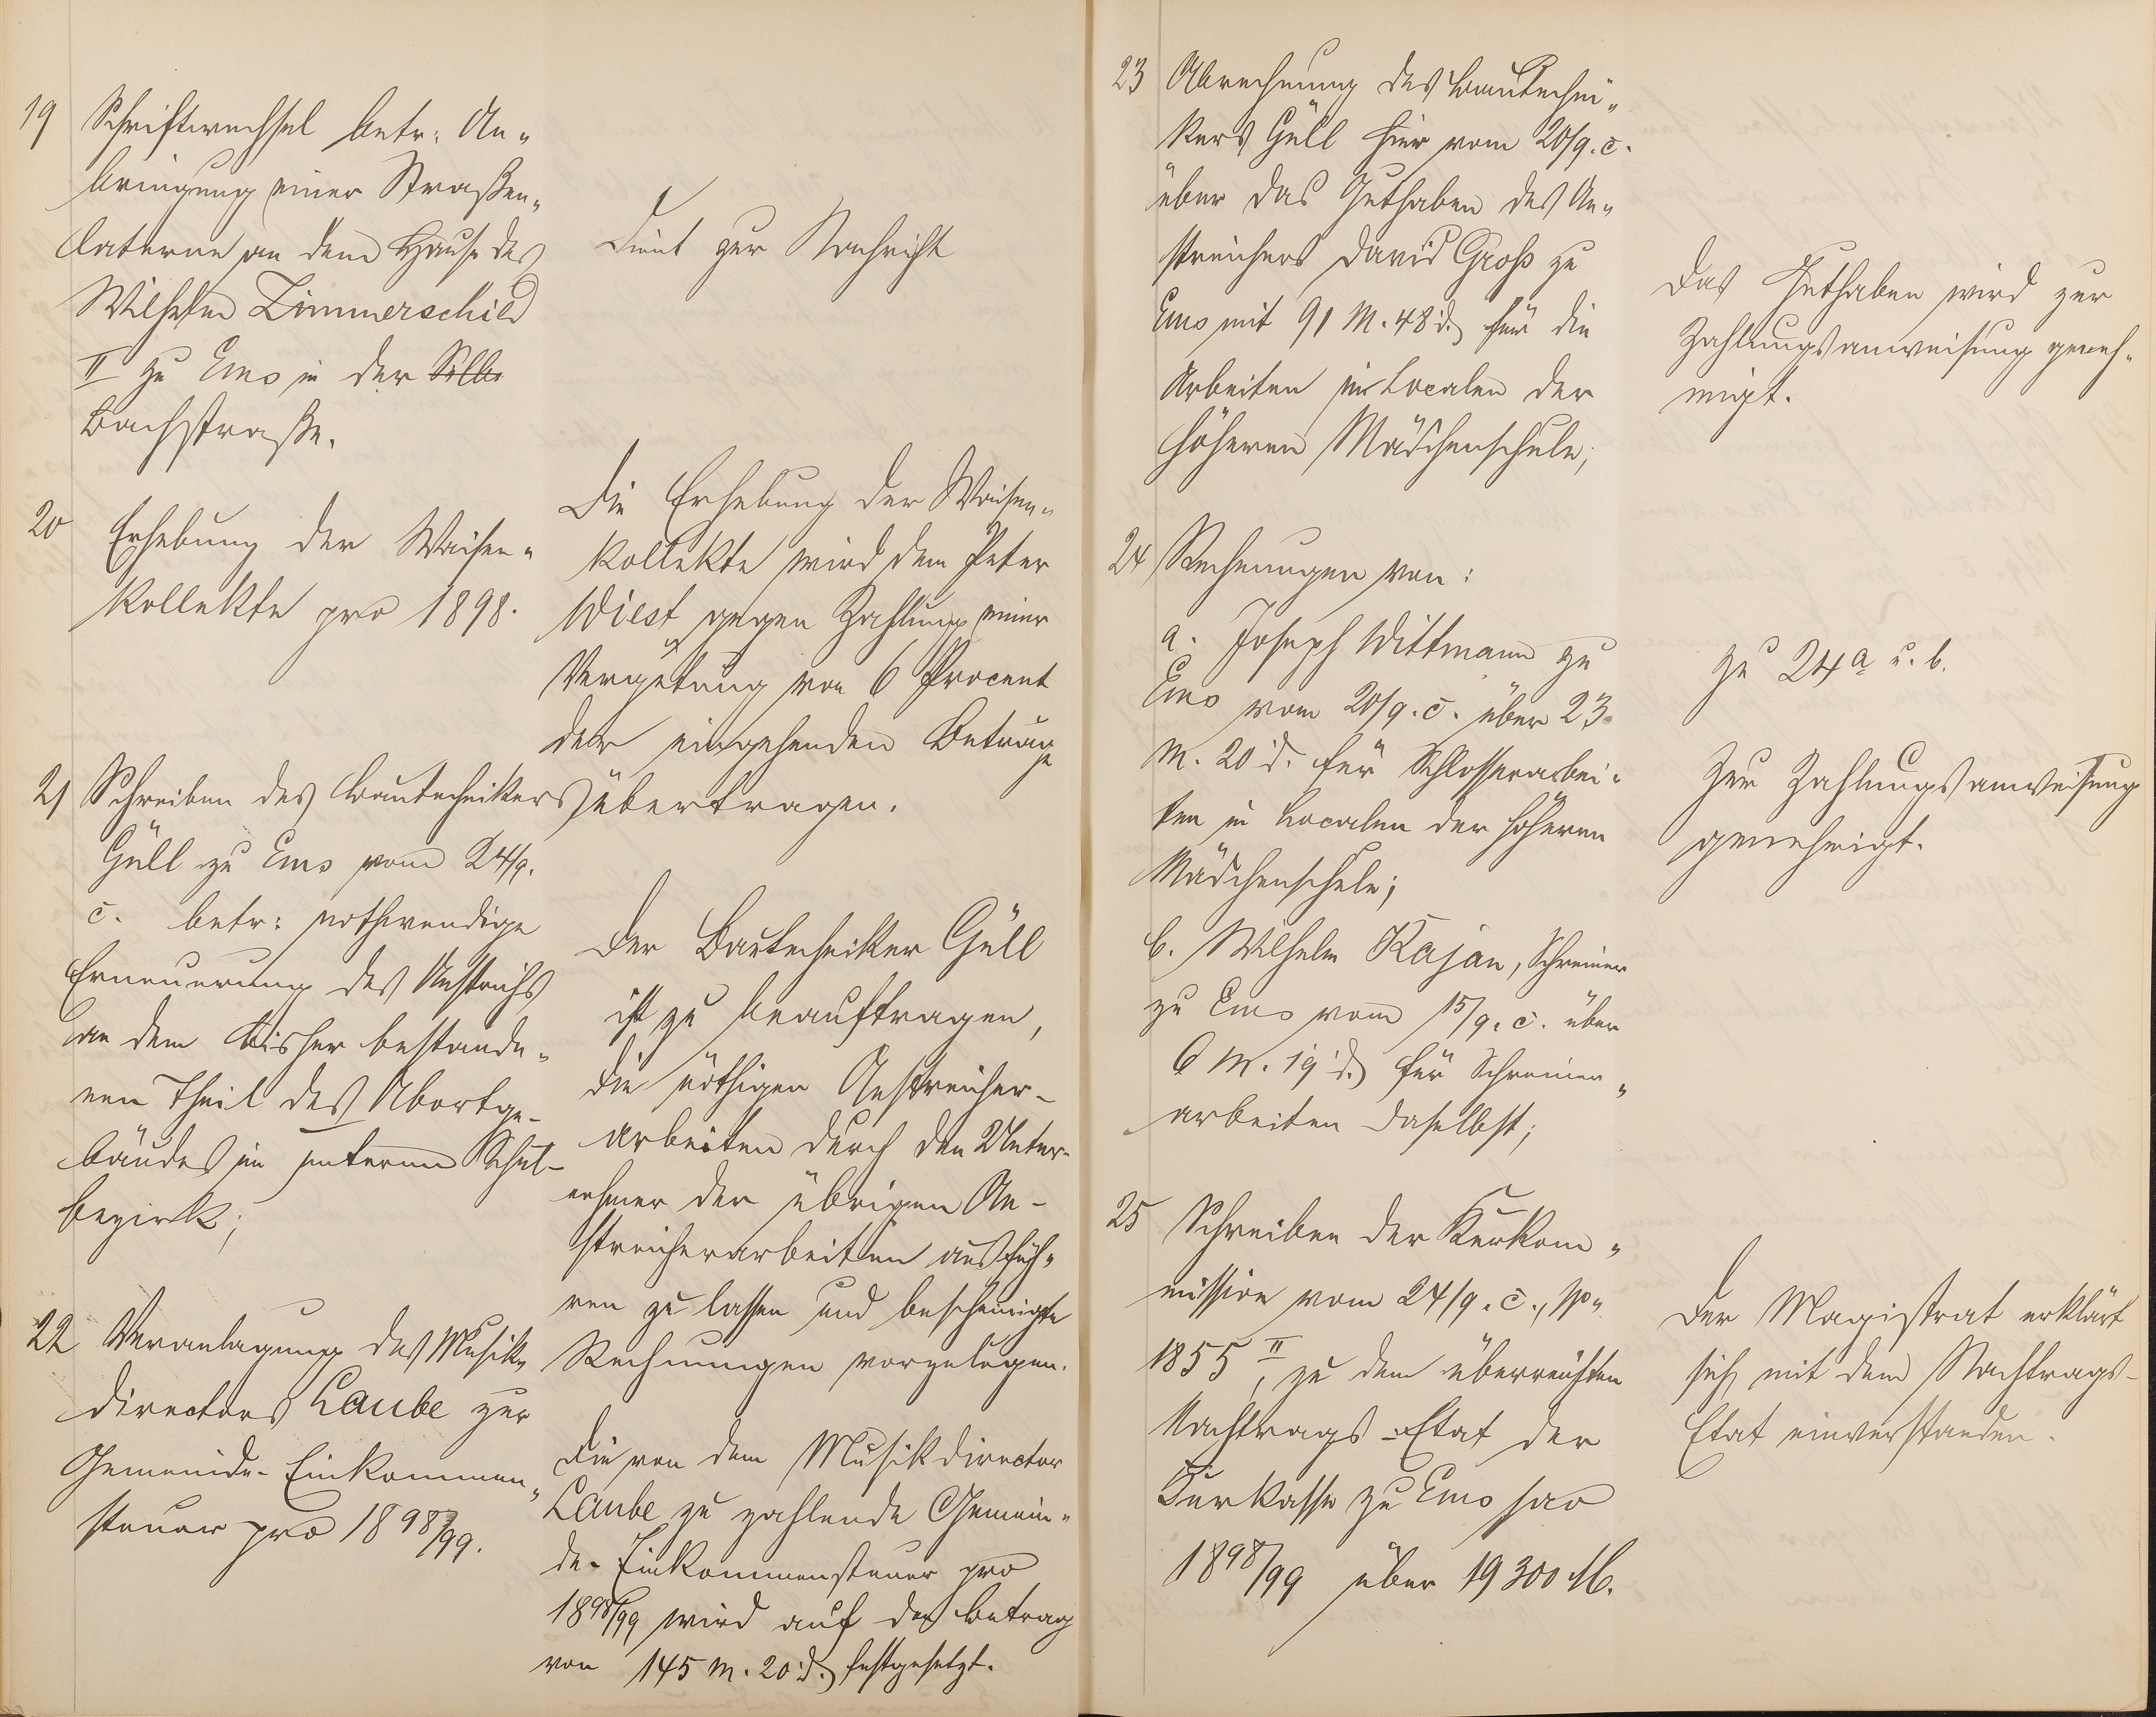 19 Schriftwechsel betr: An„
bringung einer Straßen„
laterne an dem Hause des
Wilhelm Zimmerschied
II zu Ems in der Silbe
Bachstraße.
Dient zur Nachricht
20 Erhebung der Waisen„
kollekte pro 1898.
Die Erhebung der Waisen„
kollekte wird dem Peter
Wiest gegen Zahlung einer
Vergütung von 6 Procent
der eingehenden Beträge
übertragen.
21 Schreiben des Bautechnikers
Güll zu Ems vom 24/9.
c. betr: nothwendige
Erneuerung des Anstrichs
an dem bisher bestande„
nen Theil des Abortge-
bäudes im unteren Schul-
bezirk;
Der Bautechniker Güll
ist zu beauftragen,
die nöthigen Anstreicher-
arbeiten durch den Unter-
nehmer der übrigen An-
streicherarbeiten ausfüh„
ren zu lassen und bescheinigte
Rechnungen vorzulegen.
22 Veranlagung des Musik„
directors Laube zur
Gemeinde-Einkommen„
steuer pro 1898/99.
Die von dem Musikdirector
Laube zu zahlende Gemein„
de-Einkommensteuer pro
1898/99 wird auf den Betrag
von 145 M. 20 d. festgesetzt.
23 Abrechnung des Bautechni„
kers Güll hier vom 20/9. c.
über das Guthaben des An„
streichers David Groß zu
Ems mit 91 M. 48 d. für die
Arbeiten im Localen der
höheren Mädchenschule;
Das Guthaben wird zur
Zahlungsanweisung geneh„
migt.
24 Rechnungen von:
a. Joseph Wittmann zu
Ems vom 20/9. c. über 23
M. 20 d. für Schlosserarbei„
ten in Localen der höheren
Mädchenschule;
b. Wilhelm Kajan, Schreiner
zu Ems vom 15/9. c. über
6 M. 19 d. für Schreiner„
arbeiten daselbst;
zu 24a u. b.
Zur Zahlungsanweisung
genehmigt.
25 Schreiben der Kurkom„
mission vom 24/9. c.,
1855 II, zu dem überreichten
Nachtrags-Etat der
Kurkasse zu Ems pro
1898/99 über 19300 M.
Der Magistrat erklärt
sich mit dem Nachtrags-
Etat einverstanden.